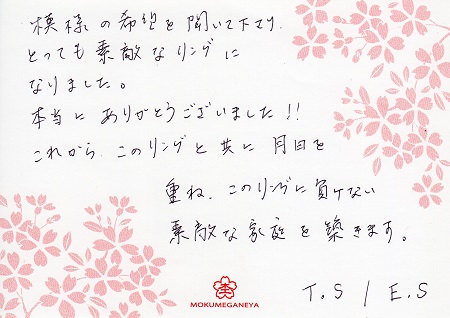 模様の希望を聞いて下さり、
とっても素敵なリングに
なりました。
本当にありがとうございました!!
これから、このリングと共に月日を
重ね、このリングに負けない
素敵な家庭を築きます。
T.S / E.S
MOKUMEGANEYA